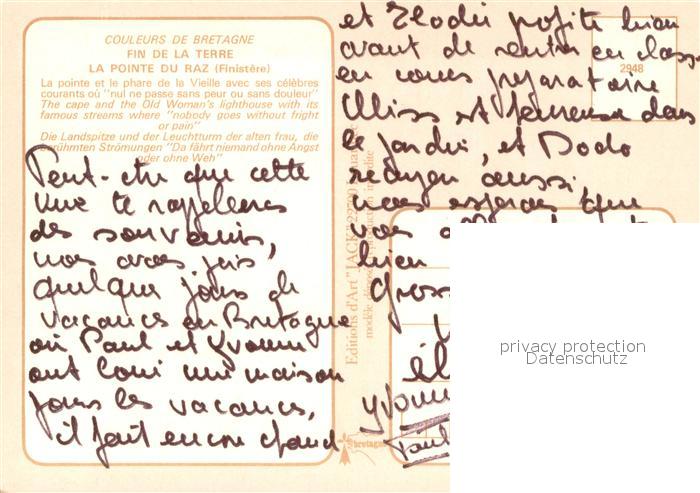 COULEURS DE BRETAGNE
FIN DE LA TERRE
LA POINTE DU RAZ (Finistère)
La pointe et le phare de la Vieille avec ses célèbres
courants où "nul ne passe sans peur ou sans douleur"
The cape and the Old Woman's lighthouse with its
famous streams where "nobody goes without fright
or pain"
Die Landspitze und der Leuchtturm der alten frau, die
berühmten Strömungen "Da fährt niemand ohne Angst
oder ohne Weh"
Peut-etre que cette
vue te rappelleras
des souvenirs,
nous avons pris,
quelque jours de
vacances en Bretagne
où Paul et Yvonne
ont loué une maison
pour les vacances,
il fait encore chaud
et Elodie profite bien
avant de rentrer en classe
en cours préparatoire
Miss est heureuse dans
le jardin, et Dodo
aussi,
nous espérons que
vous
bien
Gross
Yvonne
Paul
2948
Editions d'Art "JACK" 22700
modèle déposé
Bretagne
privacy protection
Datenschutz